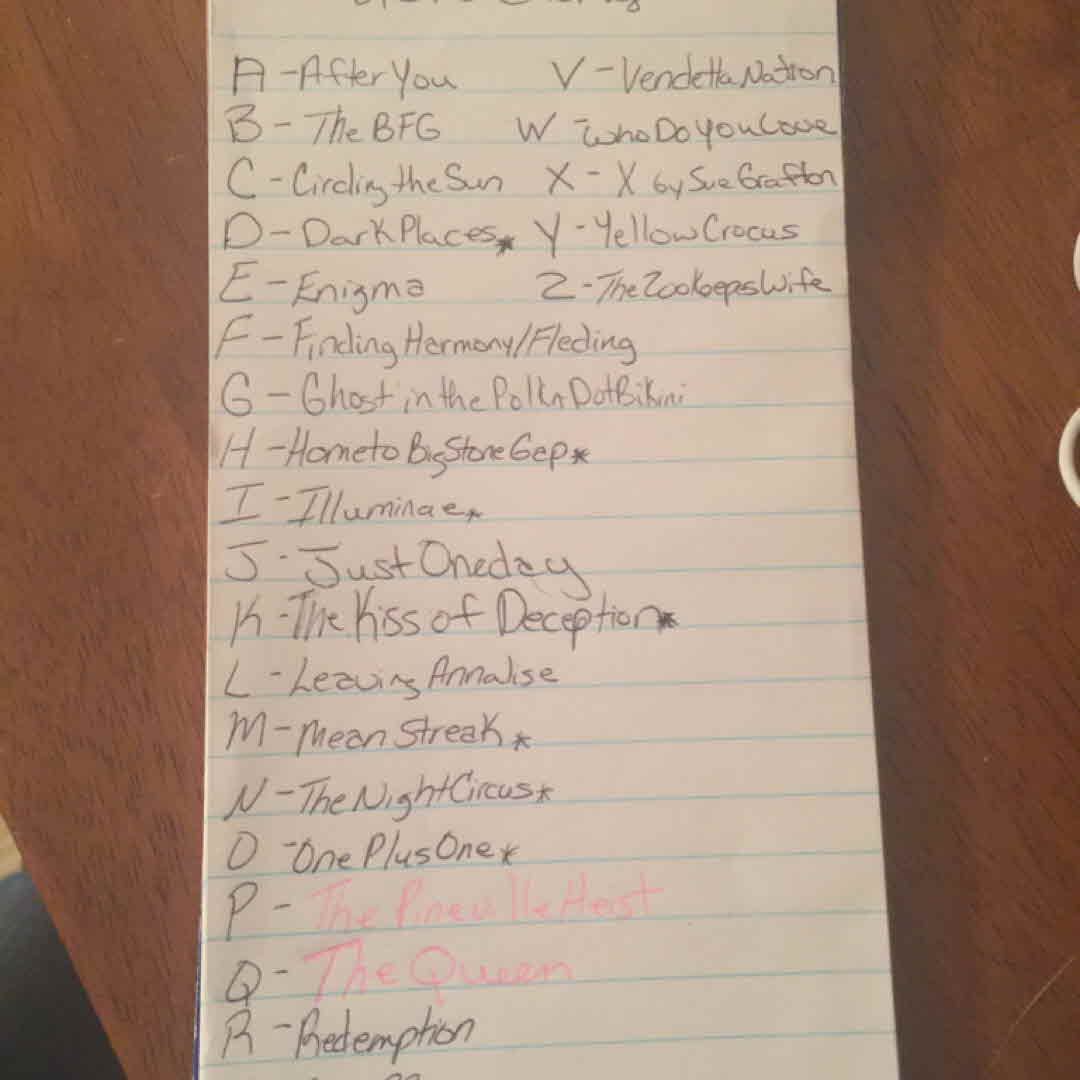 A - After You
B - The BFG
C - Circling the Sun
D - Dark Places*
E - Enigma
F - Finding Harmony/Fleding
G - Ghost in the Polka Dot Bikini
H - Home to Big Stone Gep*
I - Illuminae*
J - Just One day
K - The Kiss of Deception*
L - Leaving Annalise
M - Mean Streak*
N - The Night Circus*
O - One Plus One*
P - The Pineville Heist
Q - The Queen
R - Redemption
V - Vendetta Nation
W - Who Do You Love
X - X by Sue Grafton
Y - Yellow Crocus
Z - The Zookeeps Wife